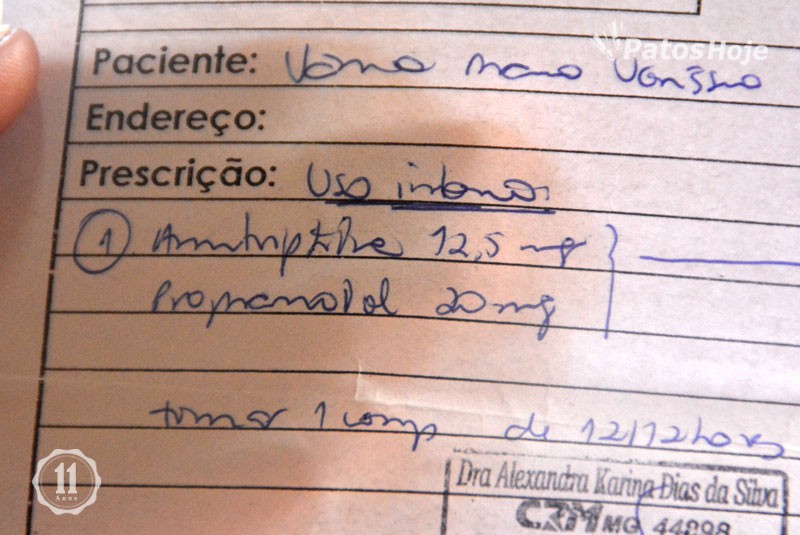 PatosHoje
Paciente: Vania Maria
Endereço:
Prescrição: Uso interno:
1 Amitriptilina 12,5 mg
Propranolol 20 mg
tomar 1 comp de 12/12 horas
11
Anos
Dra Alexandra Karina Dias da Silva
CRM MG 44898